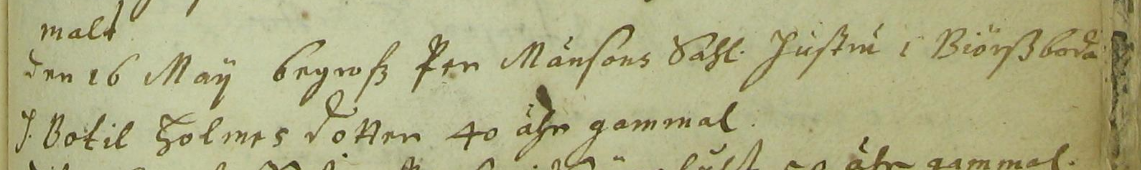 malt
den 16 Maÿ begrofz Per Månsons Sahl. Hustru i Biörßboda
J. Botil Holmes dotter 40 åhr gammal.
åhr gammal.